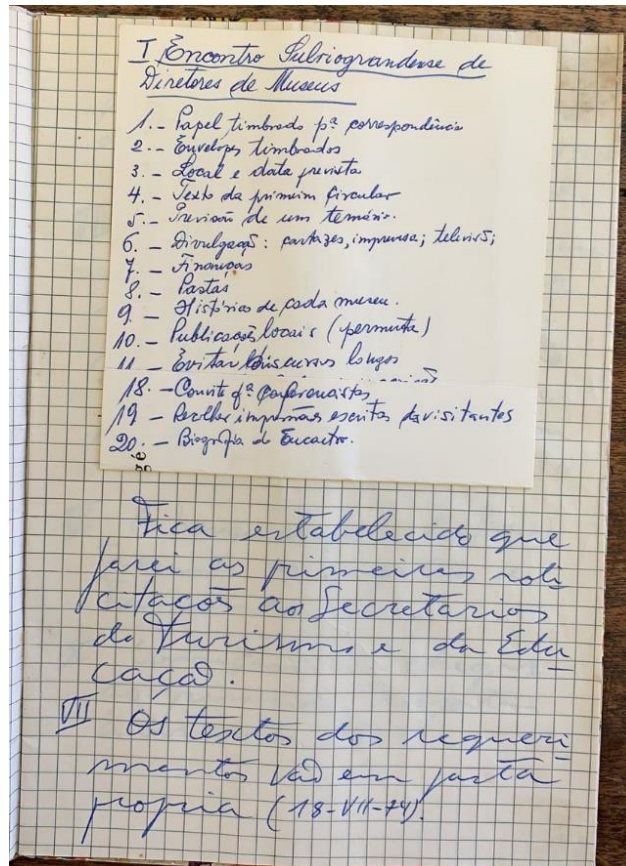 I Encontro Sulriograndense de
Diretores de Museus
1. - Papel timbrado pª correspondência
2. - Envelopes timbrados
3. - Local e data prevista
4. - Texto da primeira Circular
5. - Previsão de um temário.
6. - Divulgação: cartazes, imprensa; televisão;
7. - Finanças
8. - Pastas
9. - Histórico de cada museu.
10. - Publicações locais (permuta)
11 - Evitar discursos longos
18. - Convite pª Conferencistas
19 - Recolher impressões escritas de visitantes
20. - Biografia do Encontro.
Fica estabelecido que
farei as primeiras soli
citações aos Secretários
do Turismo e da Edu
cação.
VII Os textos dos requeri
mentos vão em pasta
propria (18-VII-74).